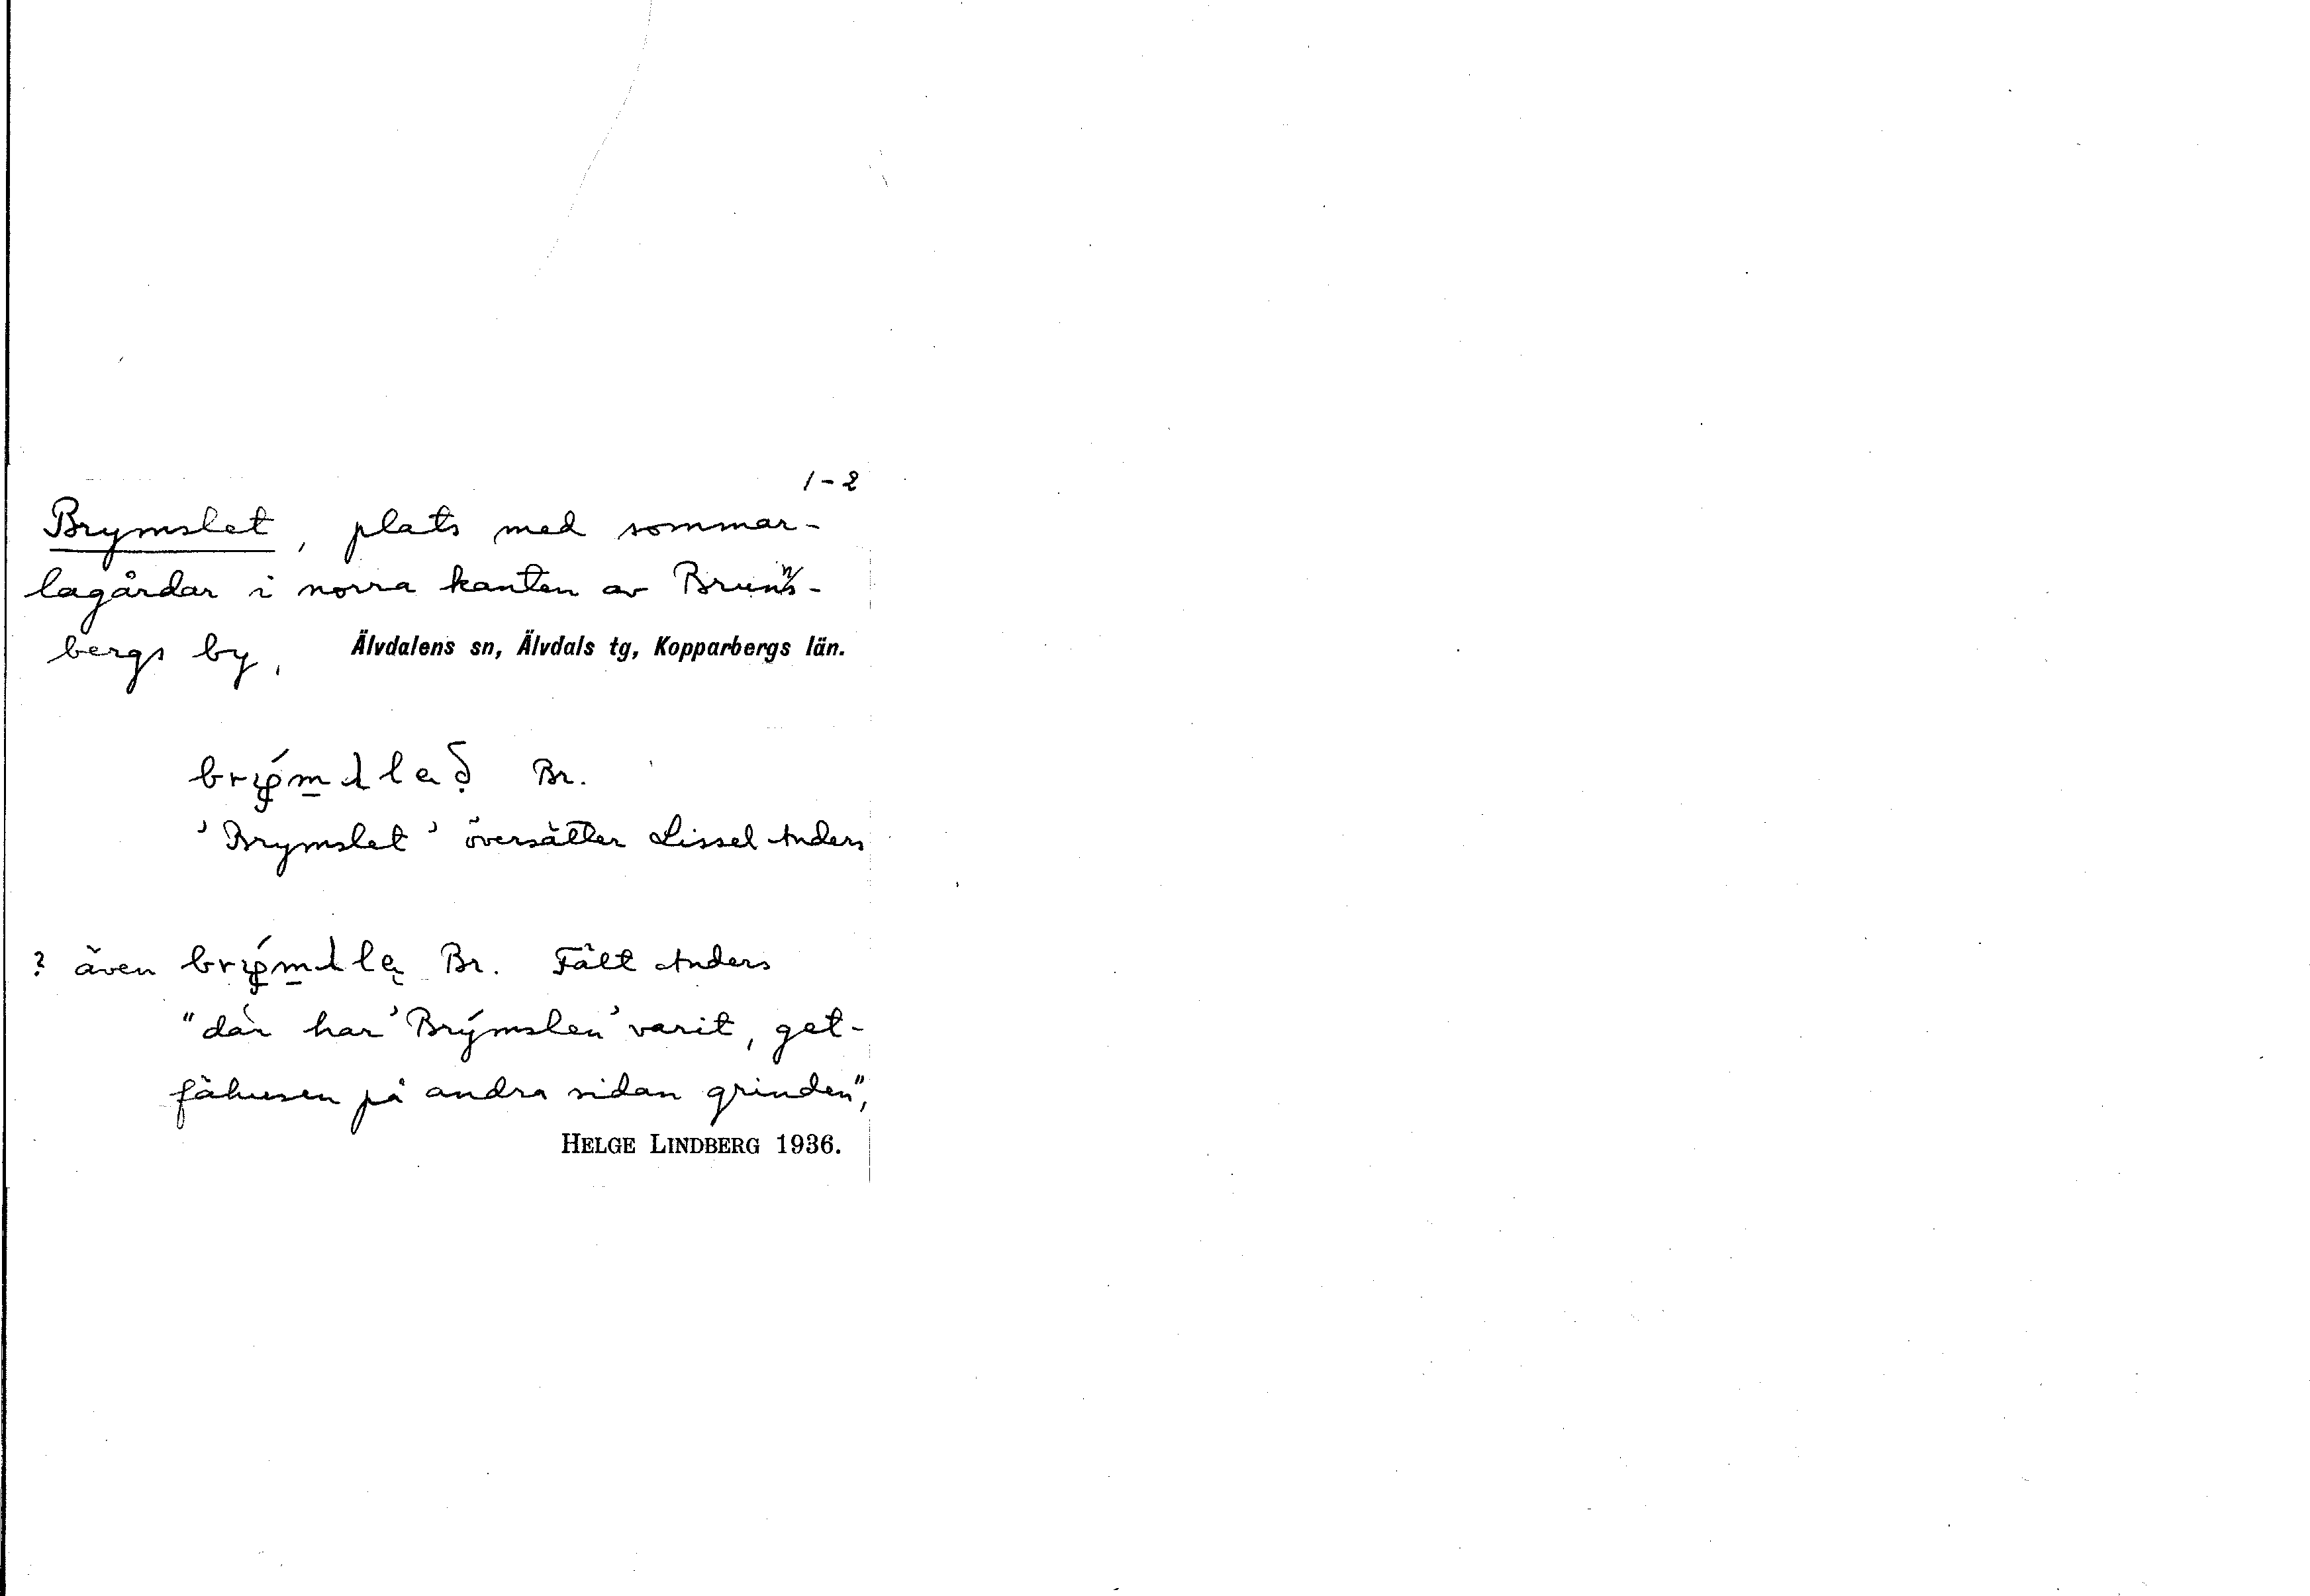 1-2
Brymslet, plats med sommar-
lagårdar i norra kanten av Bruns-
bergs by, Älvdalens sn, Älvdals tg, Kopparbergs län.
Br.
'Brymslet' översätter Lissel Anders
? även Br. Fält Anders
"där har 'Brýmslen' varit, get-
fähusen på andra sidan grinden",
HELGE LINDBERG 1936.